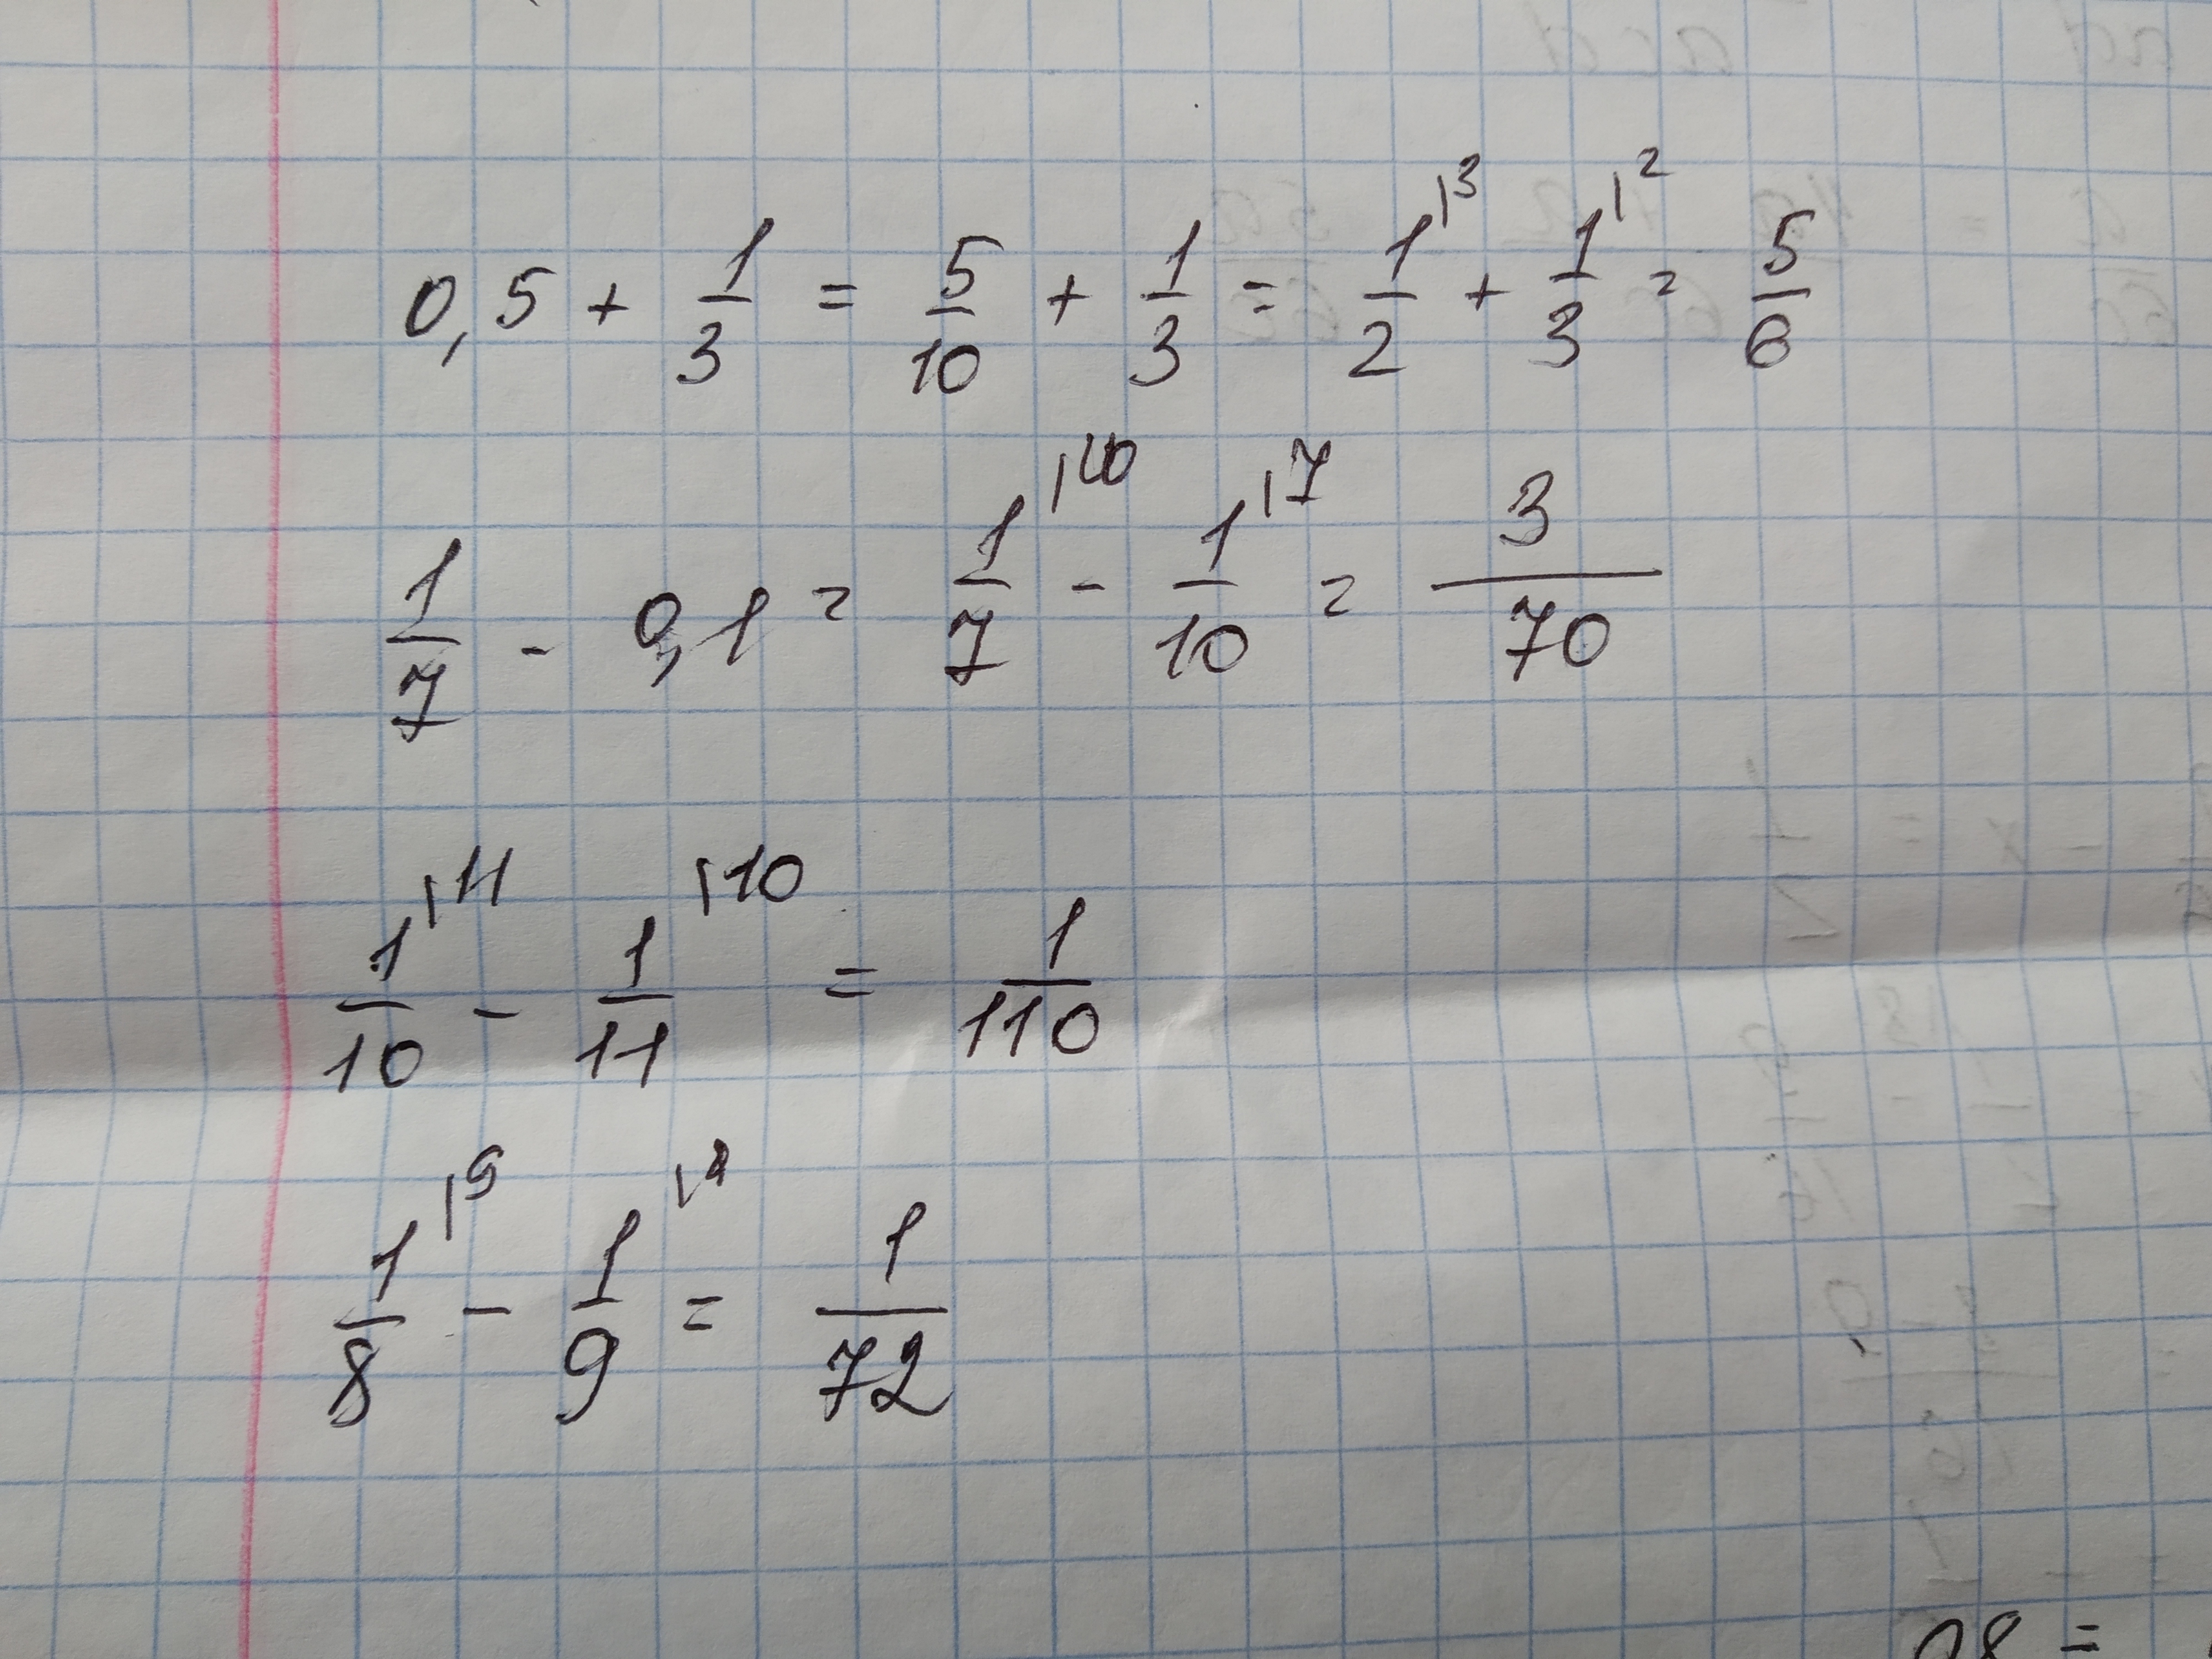 0,5 + 1/3 = 5/10 + 1/3 = 1/2 |3 + 1/3 |2 = 5/6
1/7 - 0,1 = 1/7 |10 - 1/10 |7 = 3/70
1/10 |11 - 1/11 |10 = 1/110
1/8 |9 - 1/9 = 1/72
98 =